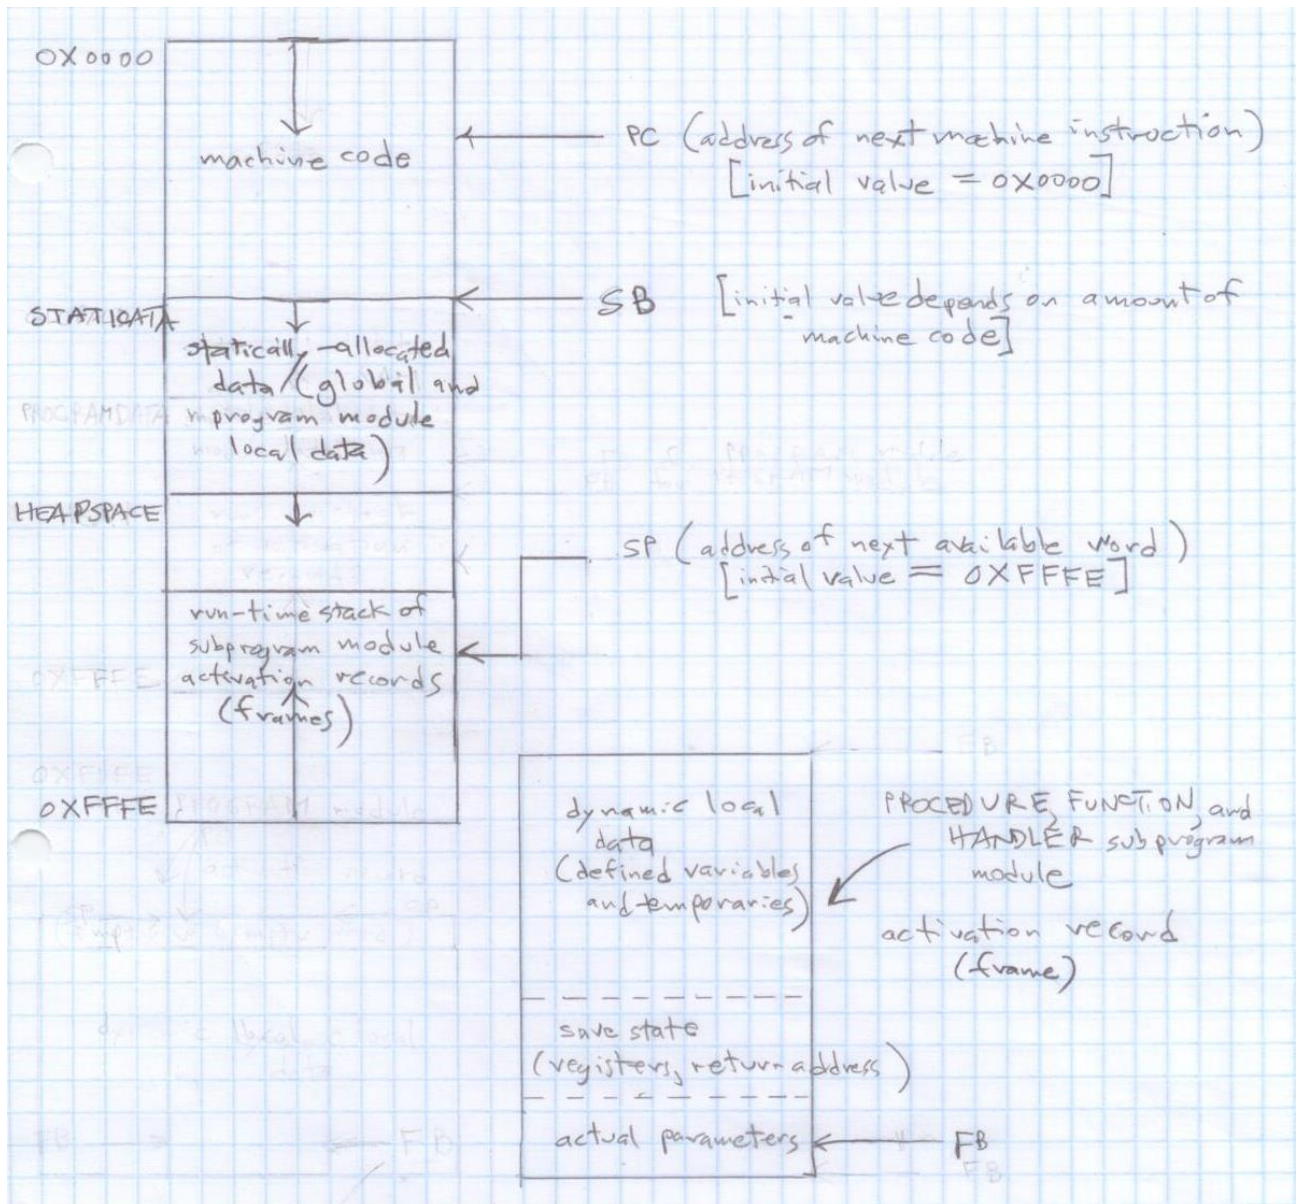 0X0000
machine code
PC (address of next machine instruction)
[initial value = 0X0000]
SB [initial value depends on amount of
machine code]
STATICDATA
statically-allocated
data (global and
program module
local data)
PROGRAMDATA
HEAPSPACE
SP (address of next available word)
[initial value = 0XFFFE]
run-time stack of
subprogram module
activation records
(frames)
0XFFFE
0XFFFE
0XFFFE
FB
dynamic local
data
(defined variables
and temporaries)
PROCEDURE, FUNCTION, and
HANDLER subprogram
module
activation record
(frame)
save state
(registers, return address)
actual parameters
FB
FB